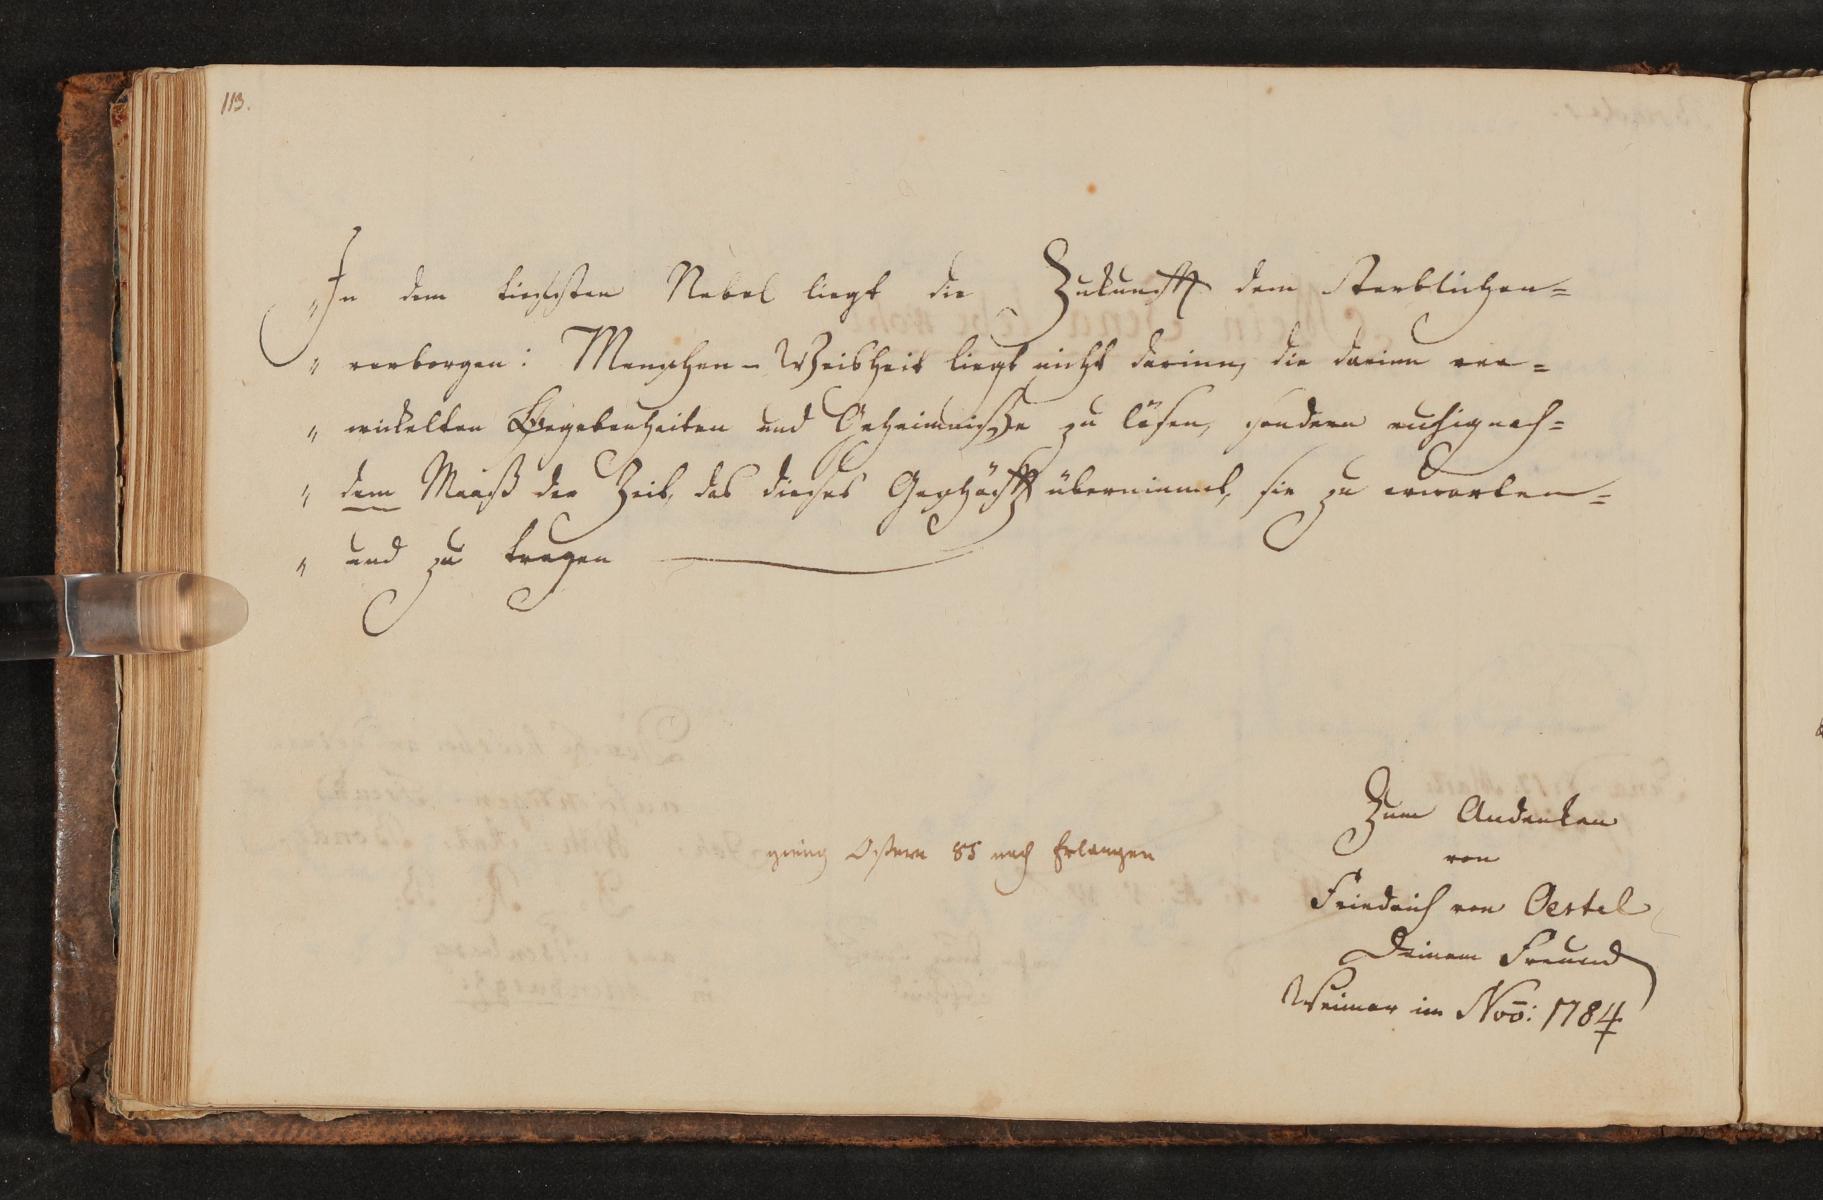 113.
„In dem tiefsten Nebel liegt die Zukunfft dem Sterblichen=
„ verborgen: Menschen-Weisheit liegt nicht darinn, die darinn ver=
„ wickelten Begebenheiten und Geheimniße zu lösen, sondern ruhig nach=
„ dem Maaß der Zeit, das dieses Geschäfft übernimmt, sie zu erwarten=
„ und zu tragen
Zum Andenken
von
Friedrich von Oertel
Deinem Freund
Weimar im Nov̄: 1784
gieng Ostern 85 nach Erlangen